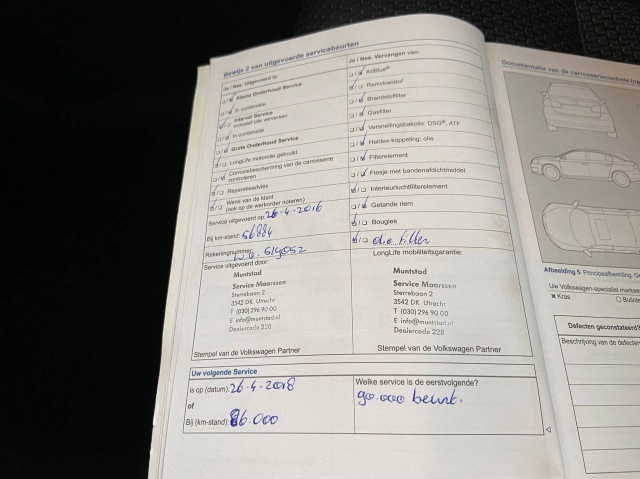 Bewijs 2 van uitgevoerde servicebeurten
Ja / Nee. Uitgevoerd is:
Kleine Onderhoud Service
In combinatie
Interval Service
Inclusief olie verversen
In combinatie
Grote Onderhoud Service
LongLife motorolie gebruikt
Corrosiebescherming van de carrosserie
controleren
Reparatieadvies
Wens van de klant
(ook op de werkorder noteren)
Service uitgevoerd op: 26-4-2016
Bij km-stand: 56884
Rekeningnummer:
Service uitgevoerd door:
Muntstad
Service Maarssen
Sterrebaan 2
3542 DK Utrecht
T (030) 296 90 00
E info@muntstad.nl
Dealercode 228
Stempel van de Volkswagen Partner
Ja / Nee. Vervangen van:
AdBlue®
Remvloeistof
Brandstoffilter
Gasfilter
Versnellingsbakolie: DSG®, ATF
Haldex-koppeling: olie
Filterelement
Flesje met bandenafdichtmiddel
Interieurluchtfilterelement
Getande riem
Bougies
olie filter
LongLife mobiliteitsgarantie:
Muntstad
Service Maarssen
Sterrebaan 2
3542 DK Utrecht
T (030) 296 90 00
E info@muntstad.nl
Dealercode 228
Stempel van de Volkswagen Partner
Uw volgende Service
is op (datum): 26-4-2018
of
Bij (km-stand): 86.000
Welke service is de eerstvolgende?
90.000 beurt.
Documentatie van de carrosseriecontrole
Afbeelding 5 Principeafbeelding.
Uw Volkswagen-specialist
Kras
Defecten geconstateerd?
Beschrijving van de defecten